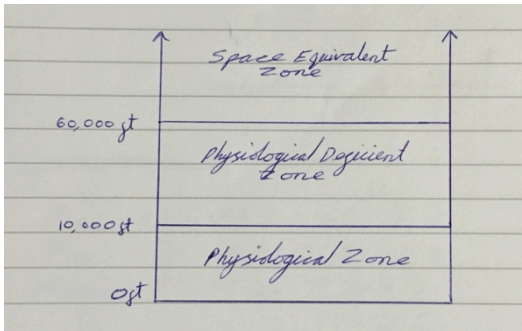 Space Equivalent
Zone
60,000 ft
Physiological Deficient
Zone
10,000 ft
Physiological Zone
0 ft